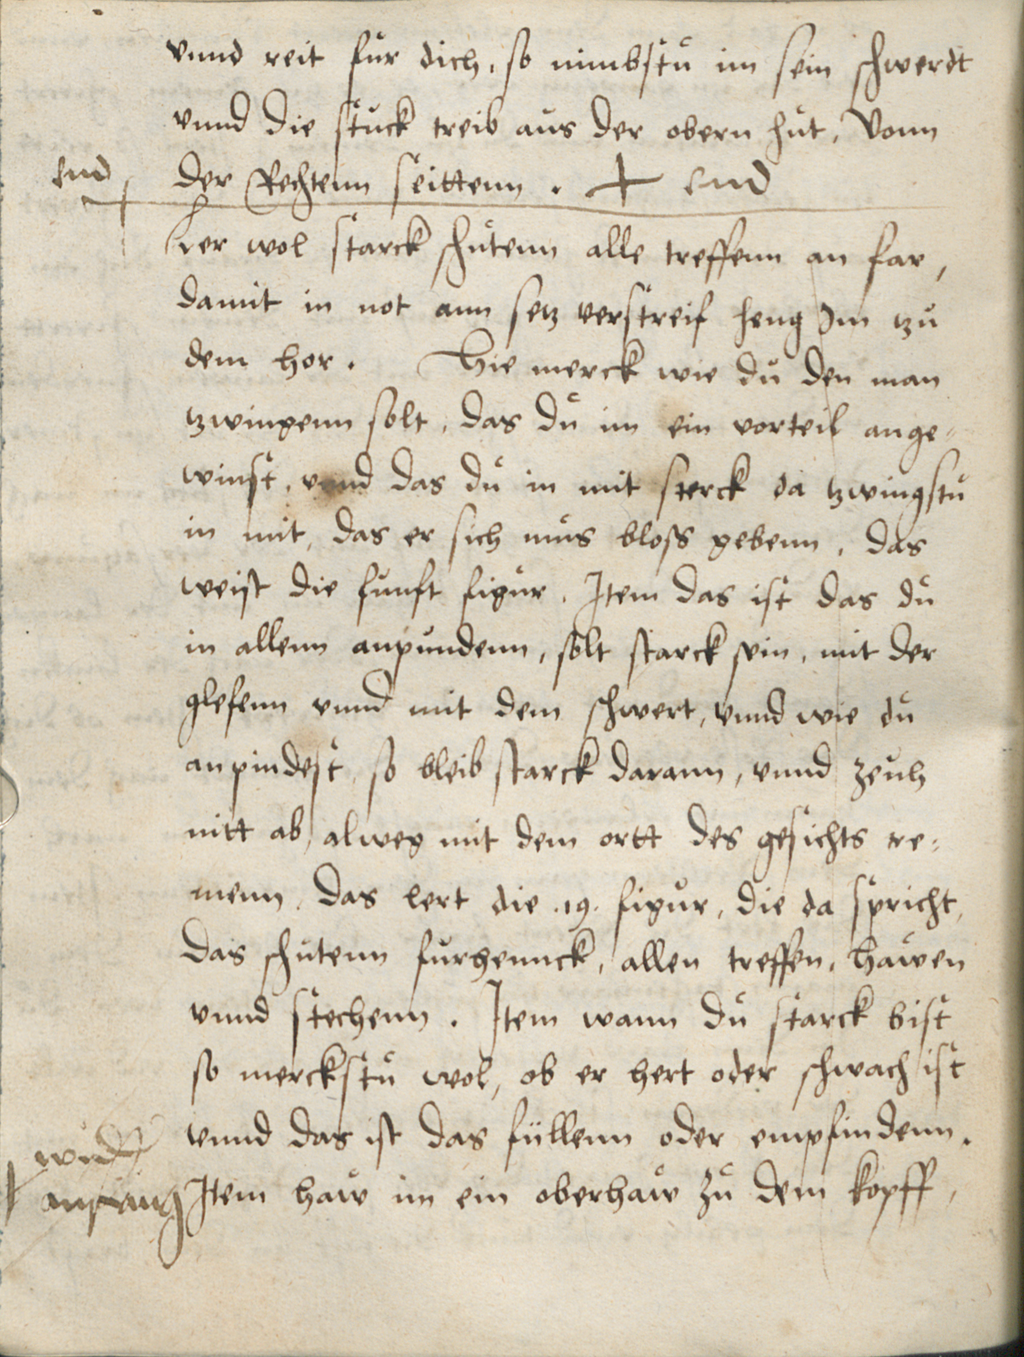 vnnd reit fur dich, so nimbstu im sein schwerdt
vnnd die stuck treib aus der obern hut, Vonn
end
der Rechtenn seittenn . + end
Ler wol starck schutenn alle treffenn an far,
damit in not ann setz verstreif heng Im tzu
dem hor . Hie merck wie du den man
tzwingenn solt, das du im ein vorteil ange-
winst, vnnd das du in mit sterck da tzwingstu
in mit, das er sich mus bloss gebenn, das
weist die funft figur. Item das ist das du
in allenn anpundenn, solt starck sein, mit der
glefenn vnnd mit dem schwert, vnnd wie du
anpindest, so bleib starck darann, vnnd zeuh
nitt ab, alweg mit dem ortt des gesichts re-
menn. Das lert die .19. figur, die da spricht,
Das schutenn furhennck, allen treffen, hawen
vnnd stechenn . Item wann du starck bist
so merckstu wol, ob er hert oder schwach ist
vnnd das ist das füllenn oder empfindenn.
wider
anfang
Item haw im ein oberhaw zu dem kopff,